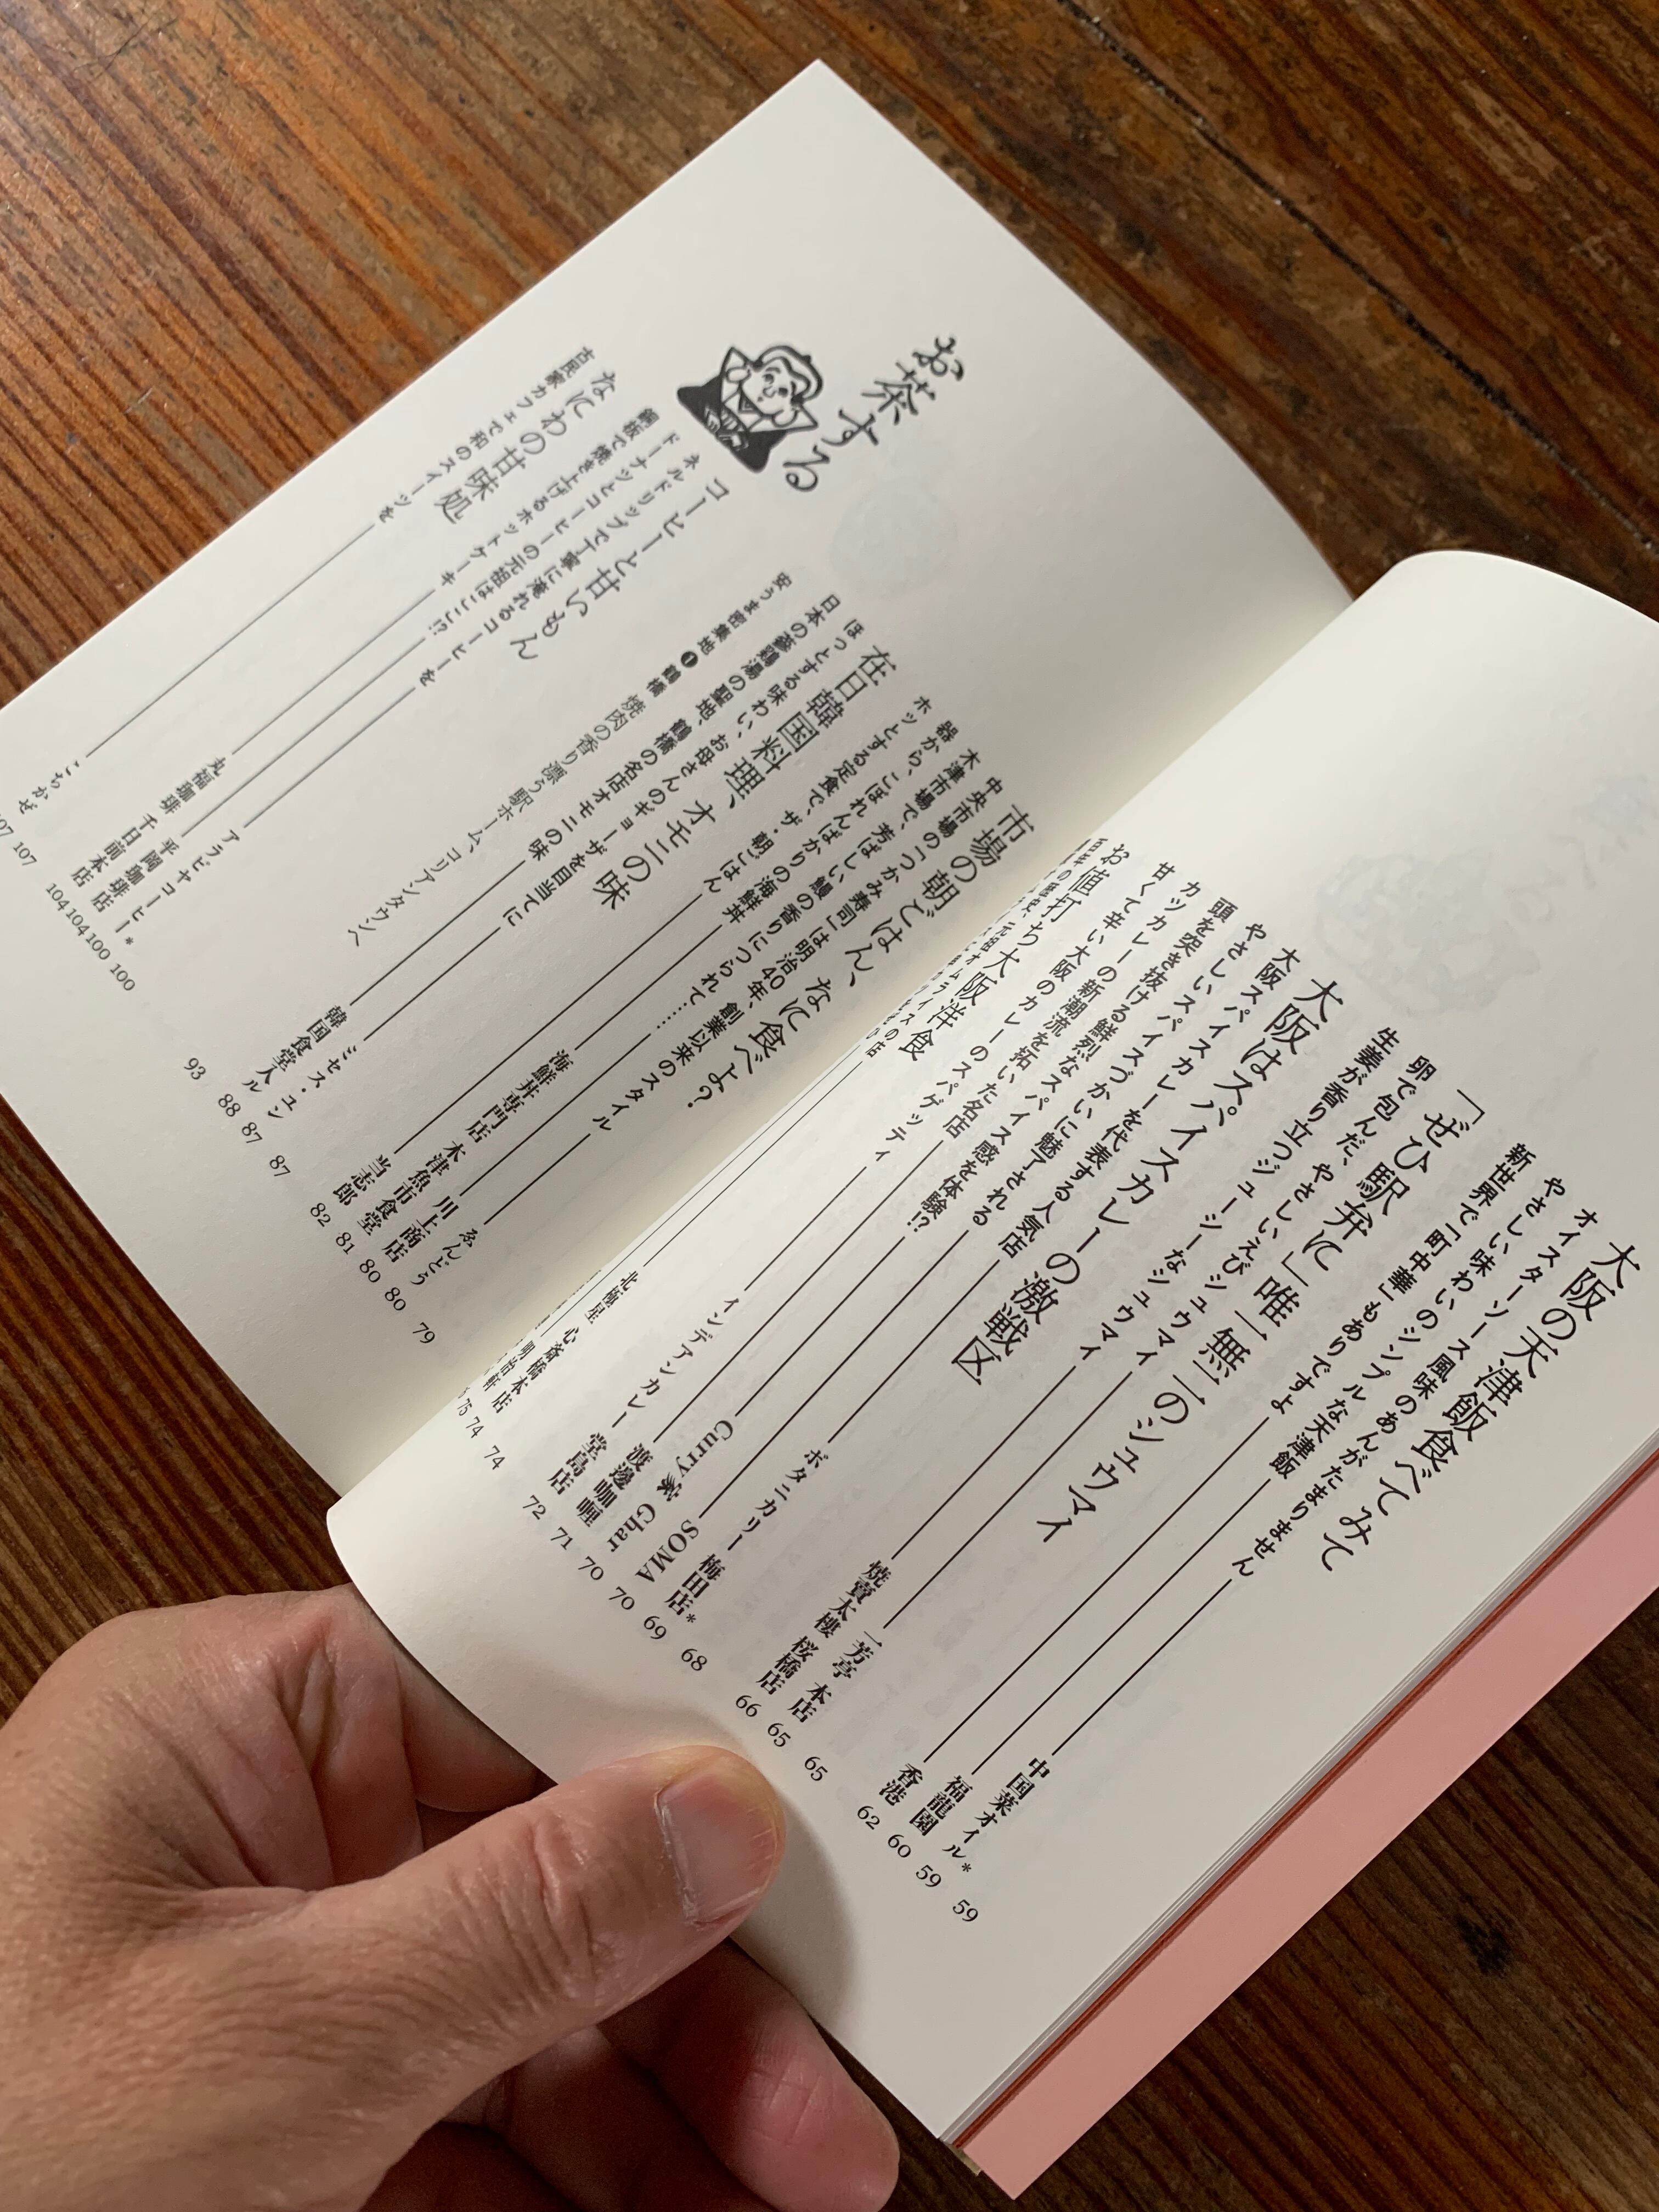 大阪の天津飯食べてみて 59
オイスターソース風味のあんがたまりません 中国菜オイル* 59
やさしい味わいのシンプルな天津飯 福龍園 60
新世界で「町中華」もありですよ 香港 62
「ぜひ駅弁に」唯一無二のシュウマイ 65
卵で包んだ、やさしいえびシュウマイ 一芳亭 本店 65
生姜が香り立つジューシーなシュウマイ 焼賣太樓 桜橋店 66
大阪はスパイスカレーの激戦区 68
大阪スパイスカレーを代表する人気店 ボタニカリー 梅田店* 69
やさしいスパイスづかいに魅了される SOMA 70
頭を突き抜ける鮮烈なスパイス感を体験!? Curry家 Ghar 70
カツカレーの新潮流を拓いた名店 渡邊咖喱 71
甘くて辛い大阪のカレーのスパゲッティ インデアンカレー 堂島店 72
お値打ち大阪洋食 74
元祖オムライスの店 北極星 心斎橋本店 74
明治軒 75
市場の朝ごはん、なに食べよ? 79
中央市場の「つかみ寿司」は明治40年、創業以来のスタイル ゑんどう 80
木津市場で、芳ばしい鰻の香りにつられて…… 川上商店 80
器から、こぼれんばかりの海鮮丼 海鮮丼専門店 木津魚市食堂 81
ホッとする定食で、ザ・朝ごはん 当志郎 82
在日韓国料理、オモニの味 87
ほっとする味わい、お母さんのギョーザを目当てに ミセス・ユン 87
日本の蔘鶏湯の聖地、鶴橋の名店オモニの味 韓国食堂 入ル 88
安うま密集地❶鶴橋 焼肉の香り漂う駅ホーム、コリアンタウンへ 93
お茶する
コーヒーと甘いもん 100
ネルドリップで丁寧に淹れるコーヒーを アラビヤコーヒー* 100
ドーナツとコーヒーの元祖はここ!? 平岡珈琲店 104
銅板で焼き上げるホットケーキ 丸福珈琲 千日前本店 104
なにわの甘味処 107
古民家カフェで和のスイーツを こちかぜ 107